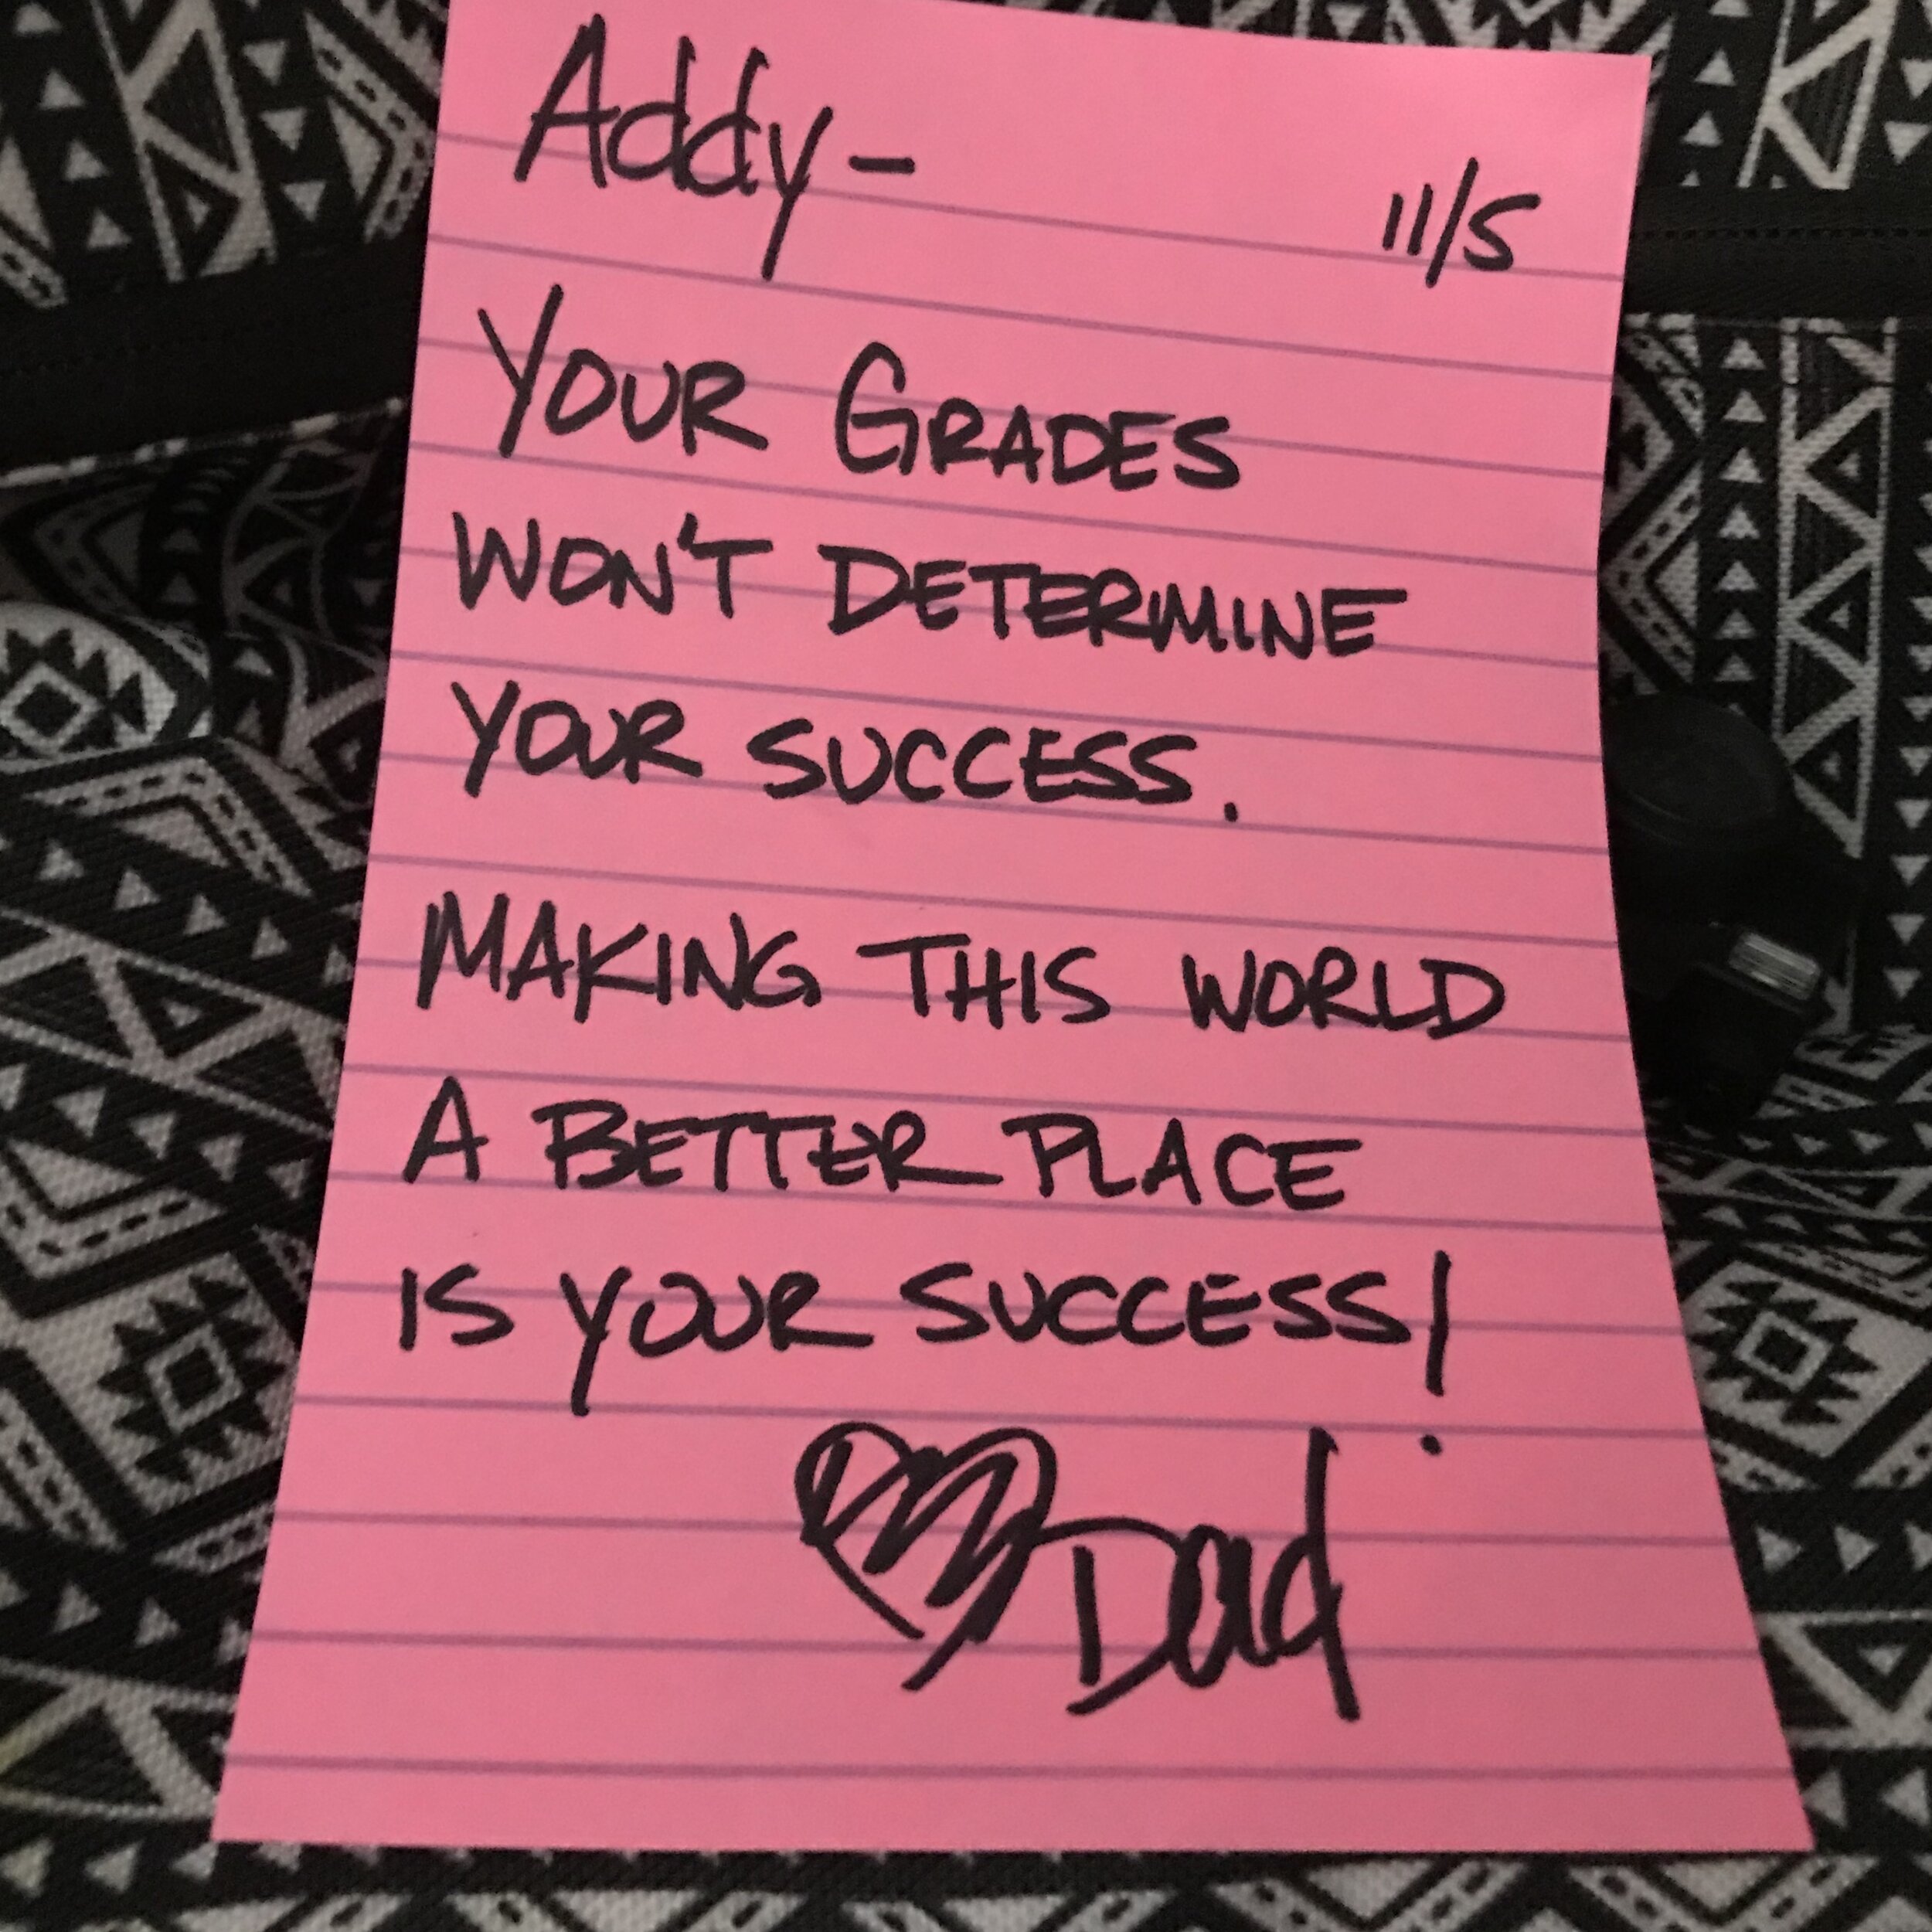 Addy-
11/5
YOUR GRADES
WON'T DETERMINE
YOUR SUCCESS.
MAKING THIS WORLD
A BETTER PLACE
IS YOUR SUCCESS!
Dad